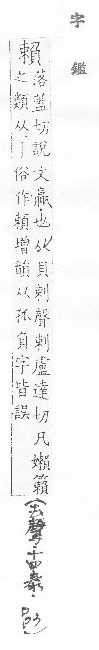 字鑑
賴落蓋切說文贏也从貝剌聲剌盧達切凡嬾籟
之類从之俗作頼增韻从孤負字皆誤
去聲·十四泰·